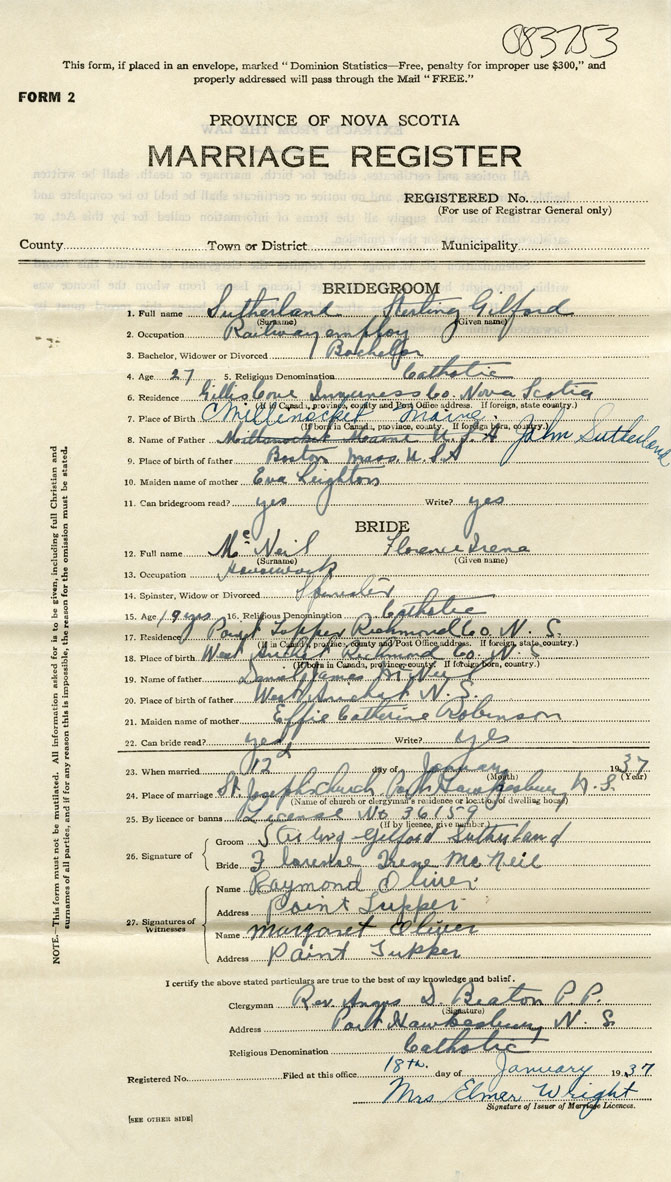 083753
This form, if placed in an envelope, marked "Dominion Statistics—Free, penalty for improper use $300," and
properly addressed will pass through the Mail "FREE."
FORM 2
PROVINCE OF NOVA SCOTIA
MARRIAGE REGISTER
REGISTERED No.
(For use of Registrar General only)
County Town or District Municipality
BRIDEGROOM
1. Full name Sutherland Sterling Gilford
(Surname) (Given name)
2. Occupation Railway employ
3. Bachelor, Widower or Divorced Bachelor
4. Age 27 5. Religious Denomination Catholic
6. Residence Gillis Cove Inverness Co. Nova Scotia
(If in Canada, province, county and Post Office address. If foreign, state country.)
7. Place of Birth Millenocket Maine
(If born in Canada, province, county. If foreign born, country.)
8. Name of Father Millanocket Maine U.S.A John Sutherland
9. Place of birth of father Boston Mass. U.S.A
10. Maiden name of mother Eva Leighton
11. Can bridegroom read? yes Write? yes
BRIDE
12. Full name McNeil Florence Irena
(Surname) (Given name)
13. Occupation Housework
14. Spinster, Widow or Divorced Spinster
15. Age 19 yrs 16. Religious Denomination Catholic
17. Residence Point Tupper Richmond Co. N. S.
(If in Canada, province, county and Post Office address. If foreign, state country.)
18. Place of birth West Arichat Richmond Co. N. S
(If born in Canada, province, county. If foreign born, country.)
19. Name of father Daniel James McNeil
20. Place of birth of father West Arichat N. S.
21. Maiden name of mother Effie Catherine Robinson
22. Can bride read? yes Write? yes
23. When married 12 day of January 1937
(Month) (Year)
24. Place of marriage St. Josephs Church, Port Hawkesbury N. S.
(Name of church or clergyman's residence or location of dwelling house)
25. By licence or banns License No 36159
(If by licence, give number)
26. Signature of
Groom Sterling Gilford Sutherland
Bride Florence Irene McNeil
27. Signatures of Witnesses
Name Raymond Oliver
Address Point Tupper
Name Margaret Oliver
Address Point Tupper
I certify the above stated particulars are true to the best of my knowledge and belief.
Clergyman Rev. Angus D. Beaton P.P.
(Signature)
Address Port Hawkesbury N. S.
Religious Denomination Catholic
Registered No. Filed at this office 18th. day of January 1937
Mrs Elmer Wright
Signature of Issuer of Marriage Licences.
[SEE OTHER SIDE]
NOTE.—This form must not be mutilated. All information asked for is to be given, including full Christian and
surnames of all parties, and if for any reason this is impossible, the reason for the omission must be stated.